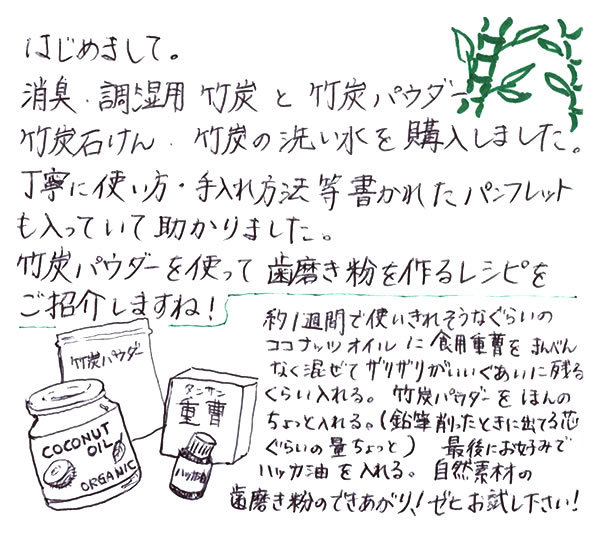 はじめまして。
消臭・調湿用 竹炭 と 竹炭パウダー
竹炭石けん・竹炭の洗い水を購入しました。
丁寧に使い方・手入れ方法等書かれたパンフレット
も入っていて助かりました。
竹炭パウダーを使って歯磨き粉を作るレシピを
ご紹介しますね!
約1週間で使いきれそうなぐらいの
ココナッツオイルに食用重曹をまんべん
なく混ぜてザリザリがいいぐあいに残る
ぐらい入れる。竹炭パウダーをほんの
ちょっと入れる。(鉛筆削ったときに出てる芯
ぐらいの量ちょっと) 最後にお好みで
ハッカ油を入れる。自然素材の
歯磨き粉のできあがり!ゼヒお試し下さい!
竹炭パウダー
タンサン
重曹
COCONUT
OIL
ORGANIC
ハッカ油